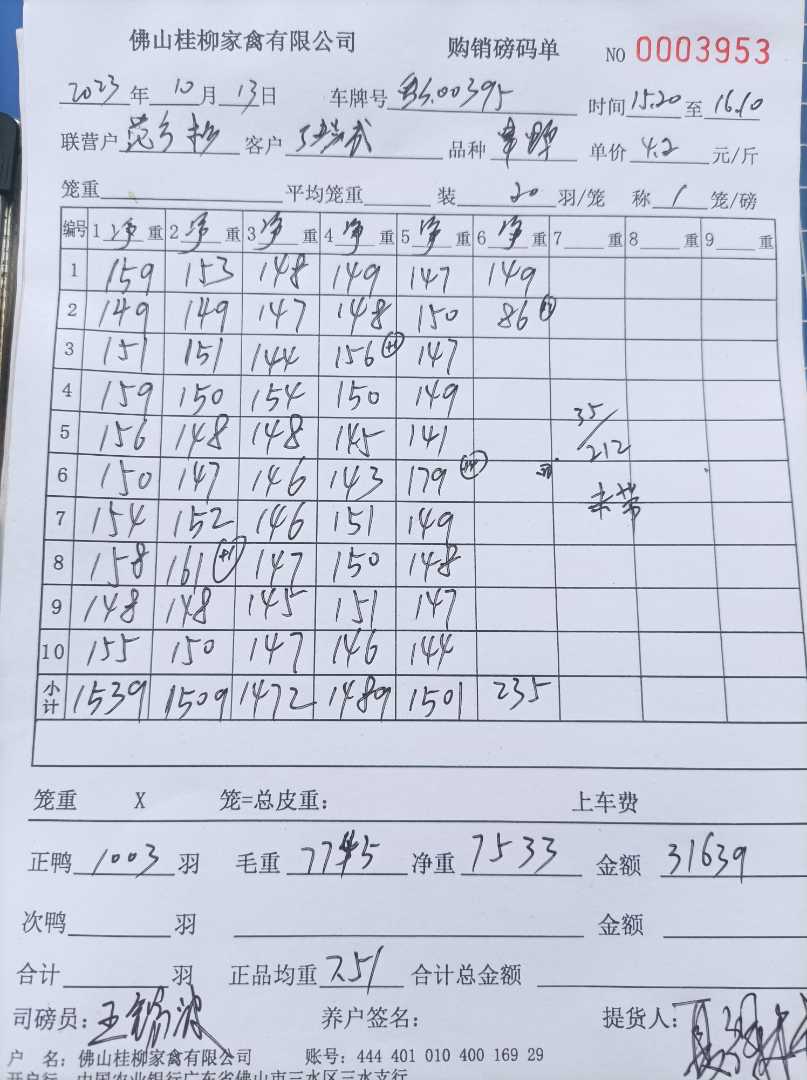 佛山桂柳家禽有限公司 购销磅码单 NO 0003953
2023年 10月 13日 车牌号 00395 时间 15.20 至 16.10
联营户 客户 品种 单价 4.2 元/斤
笼重 平均笼重 装 20 羽/笼 称 1 笼/磅
编号 1 净 重 2 净 重 3 净 重 4 净 重 5 净 重 6 净 重 7 重 8 重 9 重
1 159 153 148 149 147 149
2 149 149 147 148 150 86
3 151 151 144 156 +1 147
4 159 150 154 150 149
5 156 148 148 145 141 35/212
6 150 147 146 143 179 +4
7 154 152 146 151 149 未带
8 158 161 +1 147 150 148
9 148 148 145 151 147
10 155 150 147 146 144
小计 1539 1509 1472 1489 1501 235
笼重 X 笼=总皮重： 上车费
正鸭 1003 羽 毛重 7745 净重 7533 金额 31639
次鸭 羽 金额
合计 羽 正品均重 7.51 合计总金额
司磅员：王锦波 养户签名： 提货人：
户 名：佛山桂柳家禽有限公司 账号：444 401 010 400 169 29
开户行 中国农业银行广东省佛山市三水区三水支行